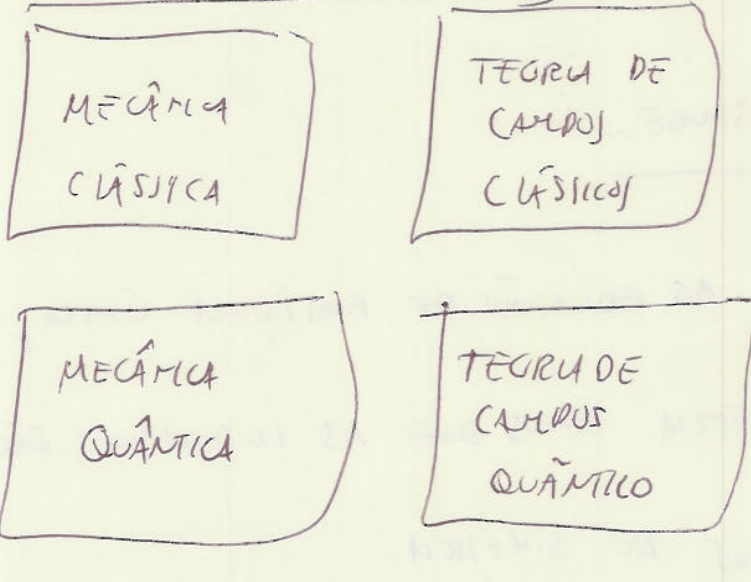 MECÂNICA
CLÁSSICA
TEORIA DE
CAMPOS
CLÁSSICOS
MECÂNICA
QUÂNTICA
TEORIA DE
CAMPOS
QUÂNTICO